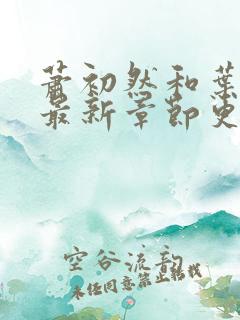 萧初然和葉
最新章節更
空谷流韵
未经同意禁止转载